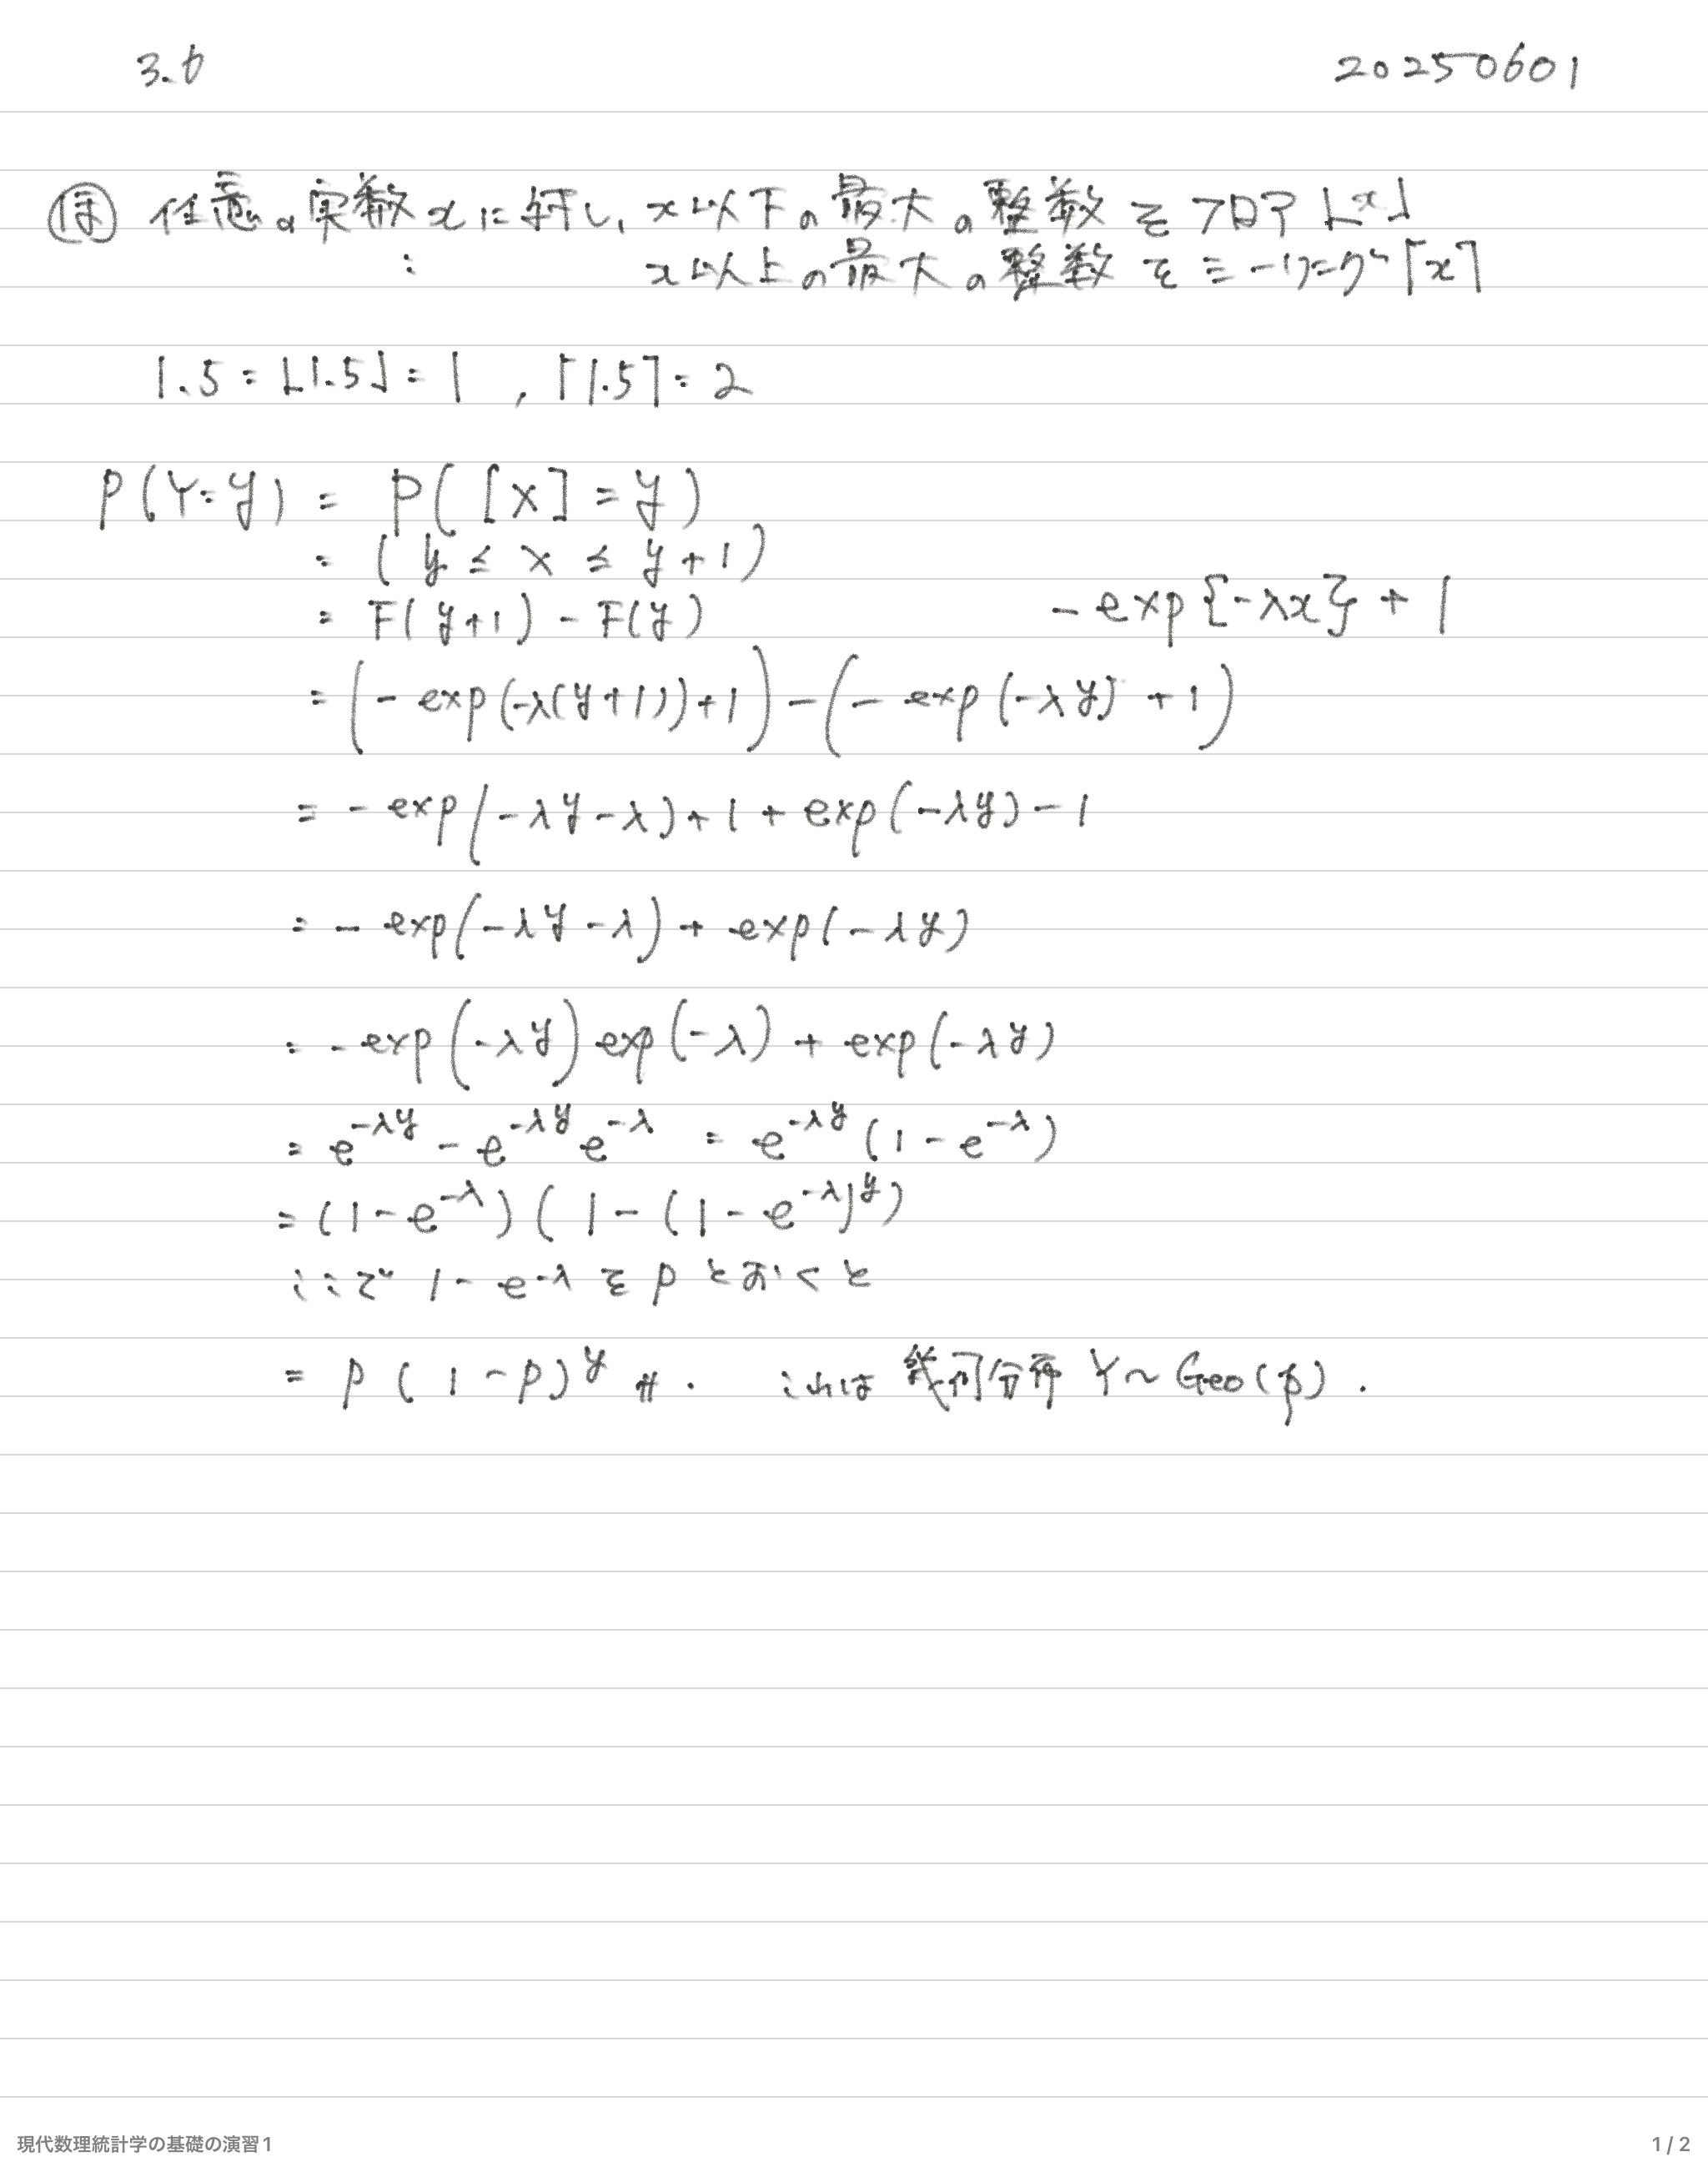 3.6 20250601
㊟ 任意の実数xに対し、x以下の最大の整数をフロア⌊x⌋
: x以上の最大の整数を≡ーリニング⌈x⌉
1.5 = ⌊1.5⌋ = 1 , ⌈1.5⌉ = 2
P(Y=y) = P([X]=y)
= (y ≤ x ≤ y+1)
= F(y+1) - F(y) -exp{-λx} + 1
= (-exp(-λ(y+1))+1) - (-exp(-λy)+1)
= -exp(-λy-λ)+1+exp(-λy)-1
= -exp(-λy-λ)+exp(-λy)
= -exp(-λy)exp(-λ)+exp(-λy)
= e^{-λy} - e^{-λy}e^{-λ} = e^{-λy}(1-e^{-λ})
= (1-e^{-λ})(1-(1-e^{-λ})^y)
ここで 1-e^{-λ}をpとおくと
= p(1-p)^y #. これは幾何分布 Y~Geo(p).
現代数理統計学の基礎の演習1 1 / 2